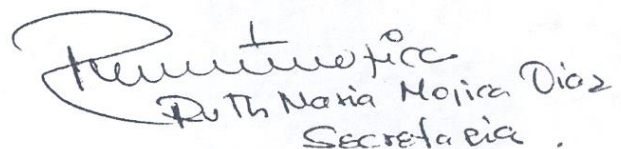 Ruth Maria Mojica Diaz
Secretaria.